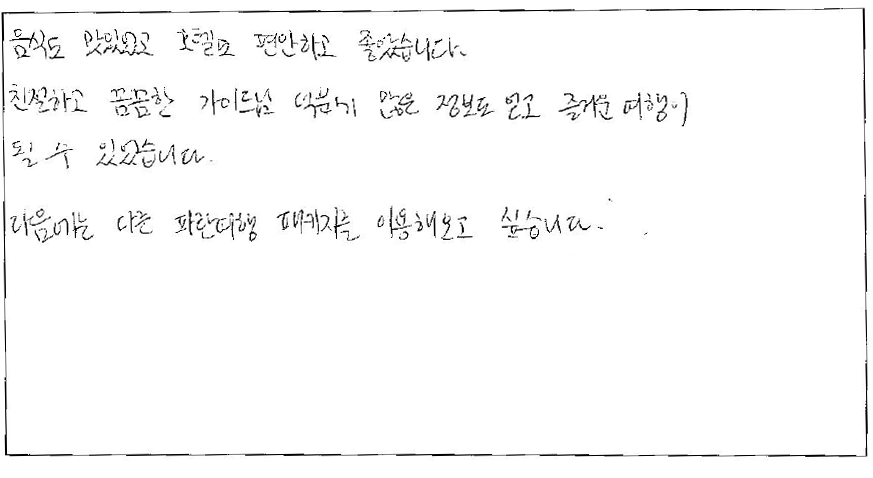 음식도 맛있었고 호텔도 편안하고 좋았습니다.
친절하고 꼼꼼한 가이드님 덕분에 많은 정보도 얻고 즐거운 여행이
될 수 있었습니다.
다음에는 다른 파란여행 패키지를 이용해보고 싶습니다.